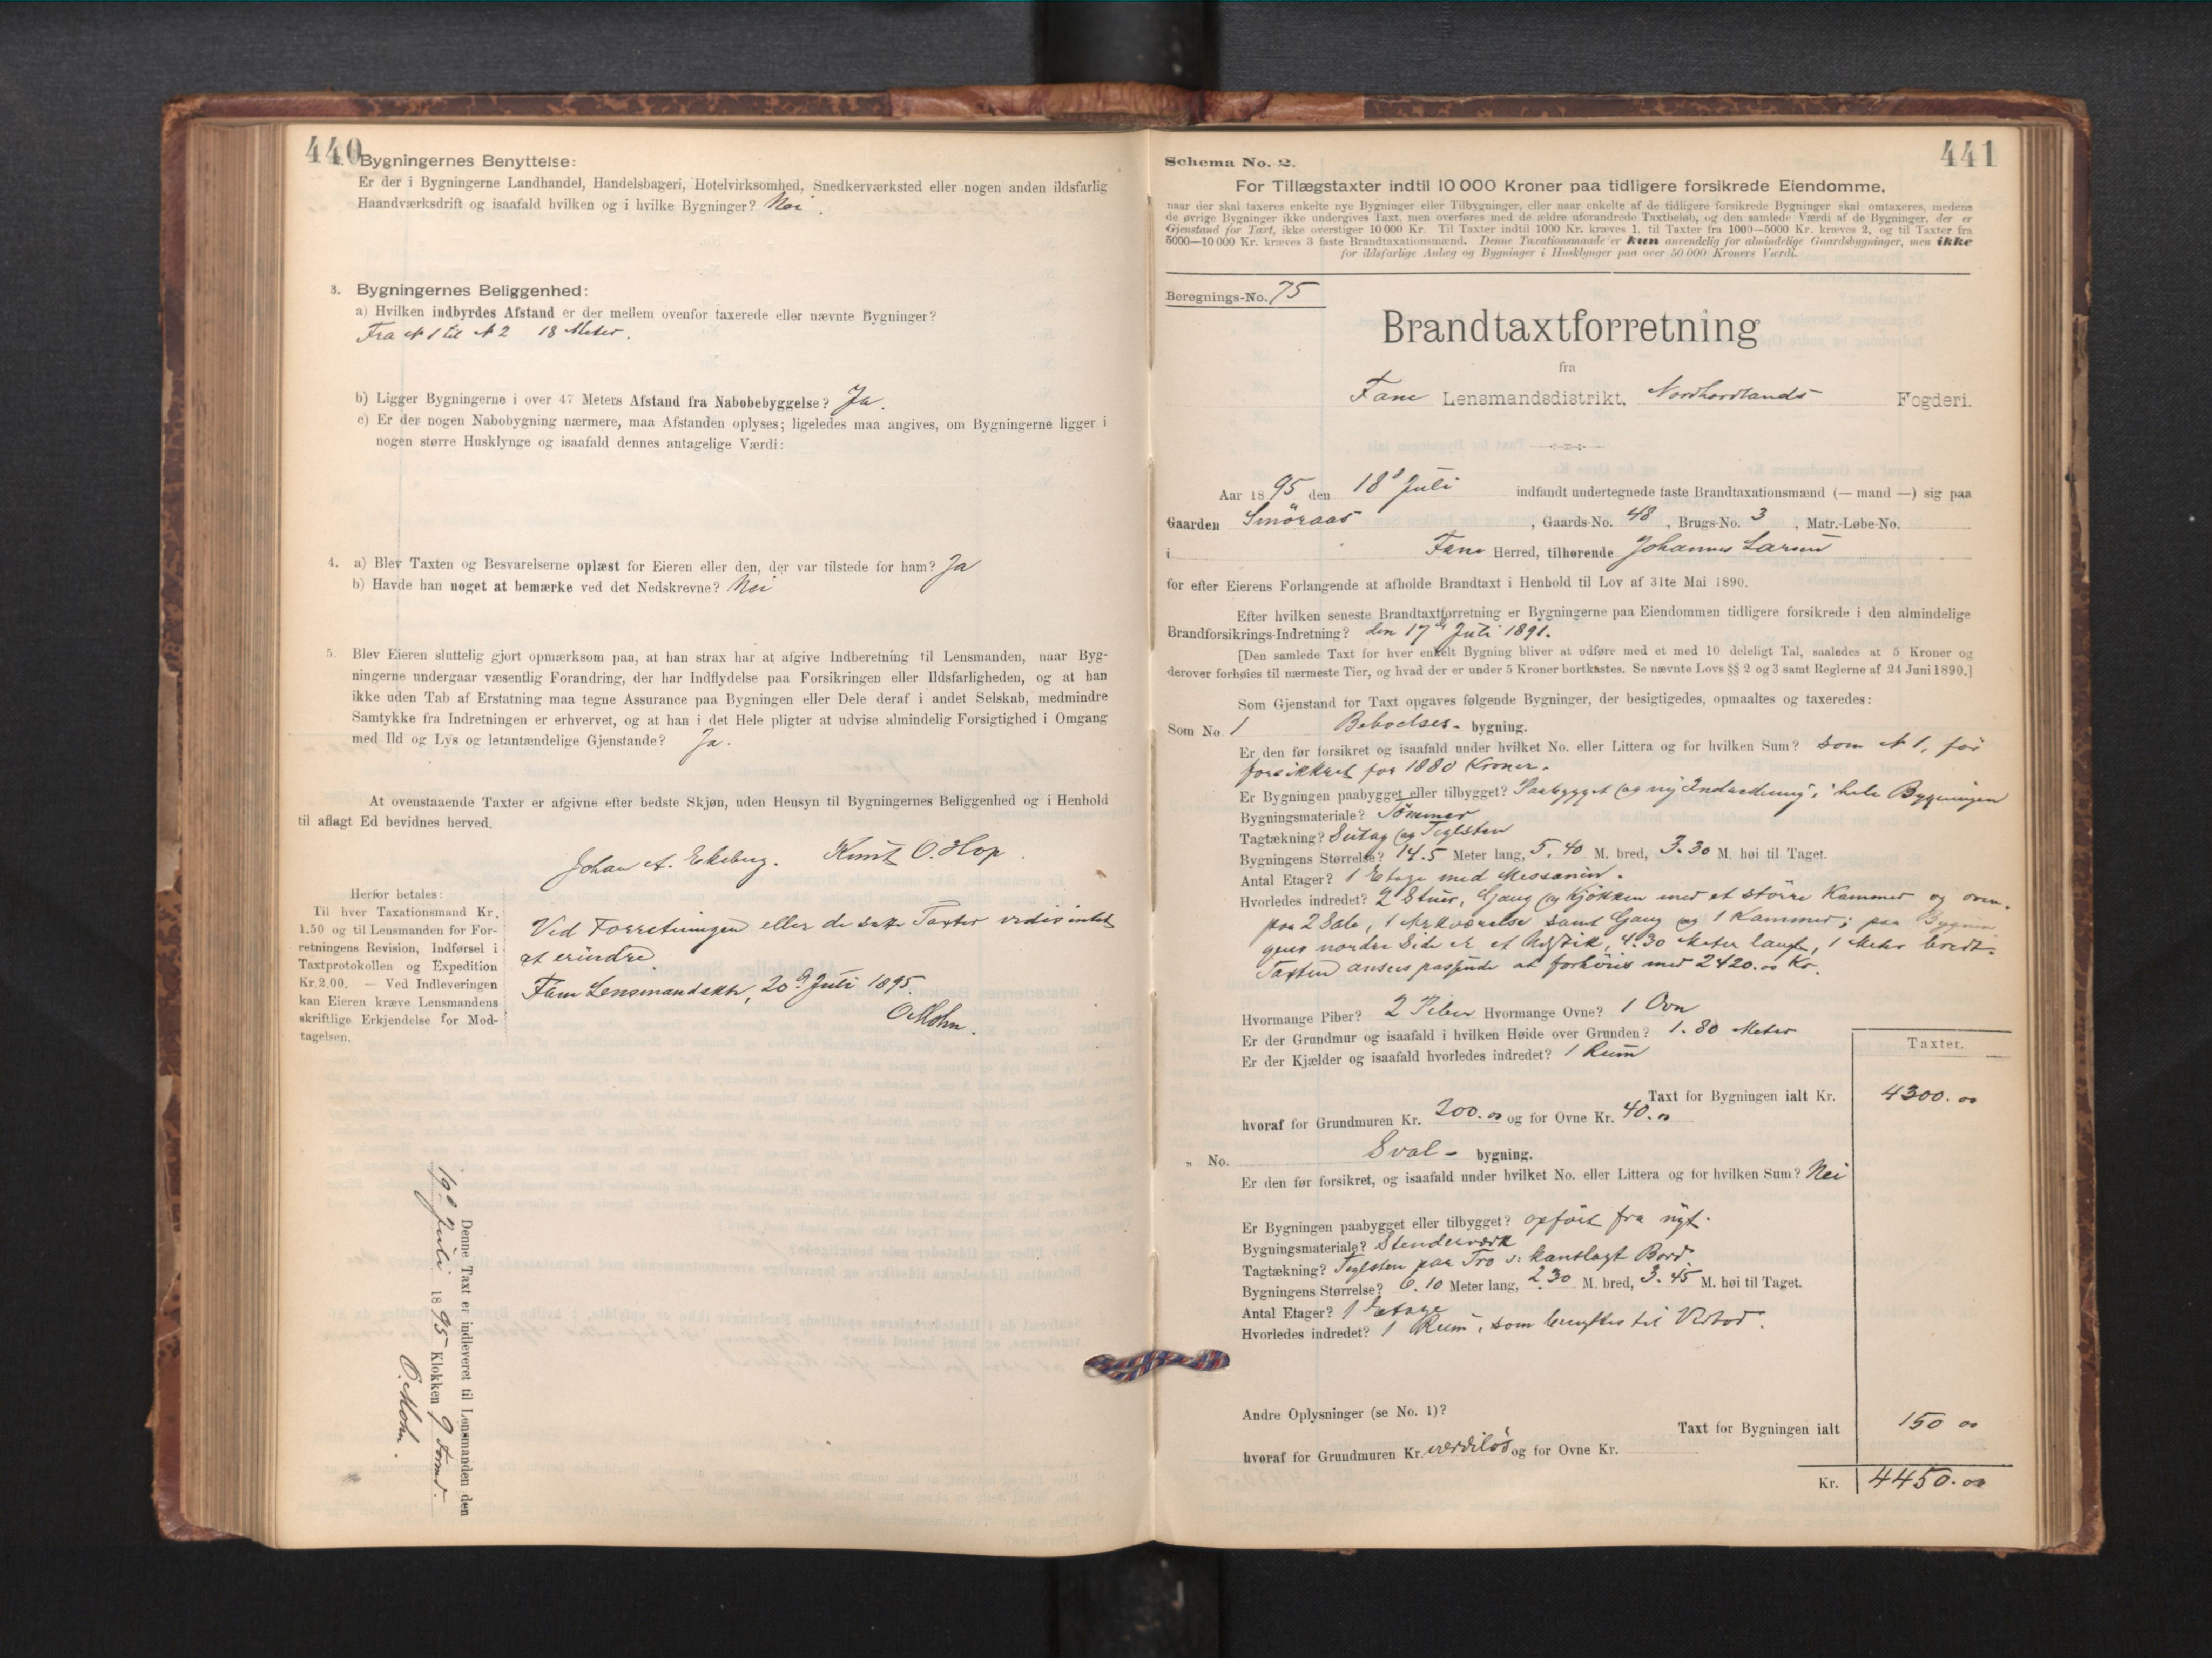 440
2. Bygningernes Benyttelse:
Er der i Bygningerne Landhandel, Handelsbageri, Hotelvirksomhed, Snedkerværksted eller nogen anden ildsfarlig
Haandværksdrift og isaafald hvilken og i hvilke Bygninger? Nei.
3. Bygningernes Beliggenhed:
a) Hvilken indbyrdes Afstand er der mellem ovenfor taxerede eller nævnte Bygninger?
Fra N 1 til N 2 18 Meter.
b) Ligger Bygningerne i over 47 Meters Afstand fra Nabobebyggelse? Ja.
c) Er der nogen Nabobygning nærmere, maa Afstanden oplyses; ligeledes maa angives, om Bygningerne ligger i
nogen større Husklynge og isaafald dennes antagelige Værdi:
4. a) Blev Taxten og Besvarelserne oplæst for Eieren eller den, der var tilstede for ham? Ja
b) Havde han noget at bemærke ved det Nedskrevne? Nei
5. Blev Eieren sluttelig gjort opmærksom paa, at han strax har at afgive Indberetning til Lensmanden, naar Byg-
ningerne undergaar væsentlig Forandring, der har Indflydelse paa Forsikringen eller Ildsfarligheden, og at han
ikke uden Tab af Erstatning maa tegne Assurance paa Bygningen eller Dele deraf i andet Selskab, medmindre
Samtykke fra Indretningen er erhvervet, og at han i det Hele pligter at udvise almindelig Forsigtighed i Omgang
med Ild og Lys og letantændelige Gjenstande? Ja.
At ovenstaaende Taxter er afgivne efter bedste Skjøn, uden Hensyn til Bygningernes Beliggenhed og i Henhold
til aflagt Ed bevidnes herved.
Johan A. Ekeberg. Knut O. Hop.
Herfor betales:
Til hver Taxationsmand Kr.
1.50 og til Lensmanden for For-
retningens Revision, Indførsel i
Taxtprotokollen og Expedition
Kr. 2.00. — Ved Indleveringen
kan Eieren kræve Lensmandens
skriftlige Erkjendelse for Mod-
tagelsen.
Ved Forretningen eller de satte Taxter vides intet
at erindre.
Fane Lensmandsktr, 20d Juli 1895.
O. Mohn.
Denne Taxt er indleveret til Lensmanden den
19d Juli 1895 Klokken 9 Formd.
O. Mohn.
441
Schema No. 2.
For Tillægstaxter indtil 10 000 Kroner paa tidligere forsikrede Eiendomme,
naar der skal taxeres enkelte nye Bygninger eller Tilbygninger, eller naar enkelte af de tidligere forsikrede Bygninger skal omtaxeres, medens
de øvrige Bygninger ikke undergives Taxt, men overføres med de ældre uforandrede Taxtbeløb, og den samlede Værdi af de Bygninger, der er
Gjenstand for Taxt, ikke overstiger 10 000 Kr. Til Taxter indtil 1000 Kr. kræves 1, til Taxter fra 1000—5000 Kr. kræves 2, og til Taxter fra
5000—10 000 Kr. kræves 3 faste Brandtaxationsmænd. Denne Taxationsmaade er kun anvendelig for almindelige Gaardsbygninger, men ikke
for ildsfarlige Anlæg og Bygninger i Husklynger paa over 50 000 Kroners Værdi.
Beregnings-No. 75
Brandtaxtforretning
fra
Fane Lensmandsdistrikt, Nordhordlands Fogderi.
Aar 1895 den 18d Juli indfandt undertegnede faste Brandtaxationsmænd (— mand —) sig paa
Gaarden Smöraas, Gaards-No. 48, Brugs-No. 3, Matr.-Løbe-No.
i Fane Herred, tilhørende Johannes Larsen
for efter Eierens Forlangende at afholde Brandtaxt i Henhold til Lov af 31te Mai 1890.
Efter hvilken seneste Brandtaxtforretning er Bygningerne paa Eiendommen tidligere forsikrede i den almindelige
Brandforsikrings-Indretning? den 17d Juli 1891.
[Den samlede Taxt for hver enkelt Bygning bliver at udføre med et med 10 deleligt Tal, saaledes at 5 Kroner og
derover forhøies til nærmeste Tier, og hvad der er under 5 Kroner bortkastes. Se nævnte Lovs §§ 2 og 3 samt Reglerne af 24 Juni 1890.]
Som Gjenstand for Taxt opgaves følgende Bygninger, der besigtigedes, opmaaltes og taxeredes:
Som No. 1 Beboelses- bygning.
Er den før forsikret og isaafald under hvilket No. eller Littera og for hvilken Sum? Som N 1, för
forsikkret for 1880 Kroner.
Er Bygningen paabygget eller tilbygget? Paabygget og ny Indredning i hele Bygningen
Bygningsmateriale? Tömmer
Tagtækning? og Teglsten
Bygningens Størrelse? 14.5 Meter lang, 5.40 M. bred, 3.30 M. høi til Taget.
Antal Etager? 1 Etage med Messanin.
Hvorledes indredet? 2 Stuer, Gang og Kjökken med et större Kammer og oven-
paa 2 Sale, 1 samt Gang og 1 Kammer; paa Bygnin
gens nordre Side er et 4.30 Meter langt, 1 Meter bredt.
Taxten ansees passende at forhöies med 2420.00 Kr.
Hvormange Piber? 2 Piber Hvormange Ovne? 1 Ovn
Er der Grundmur og isaafald i hvilken Høide over Grunden? 1.80 Meter
Er der Kjælder og isaafald hvorledes indredet? 1 Rum
Taxter.
Taxt for Bygningen ialt Kr. 4300.00
hvoraf for Grundmuren Kr. 200.00 og for Ovne Kr. 40.00
„ No. Sval- bygning.
Er den før forsikret, og isaafald under hvilket No. eller Littera og for hvilken Sum? Nei
Er Bygningen paabygget eller tilbygget? opfört fra nyt.
Bygningsmateriale? Stenderværk
Tagtækning? Teglsten paa Tro kantlagt Bord
Bygningens Størrelse? 6.10 Meter lang, 2.30 M. bred, 3.45 M. høi til Taget.
Antal Etager? 1 Etage
Hvorledes indredet? 1 Rum, som benyttes til Vedbod.
Andre Oplysninger (se No. 1)?
Taxt for Bygningen ialt 150 00
hvoraf for Grundmuren Kr. værdilös og for Ovne Kr.
Kr. 4450.00